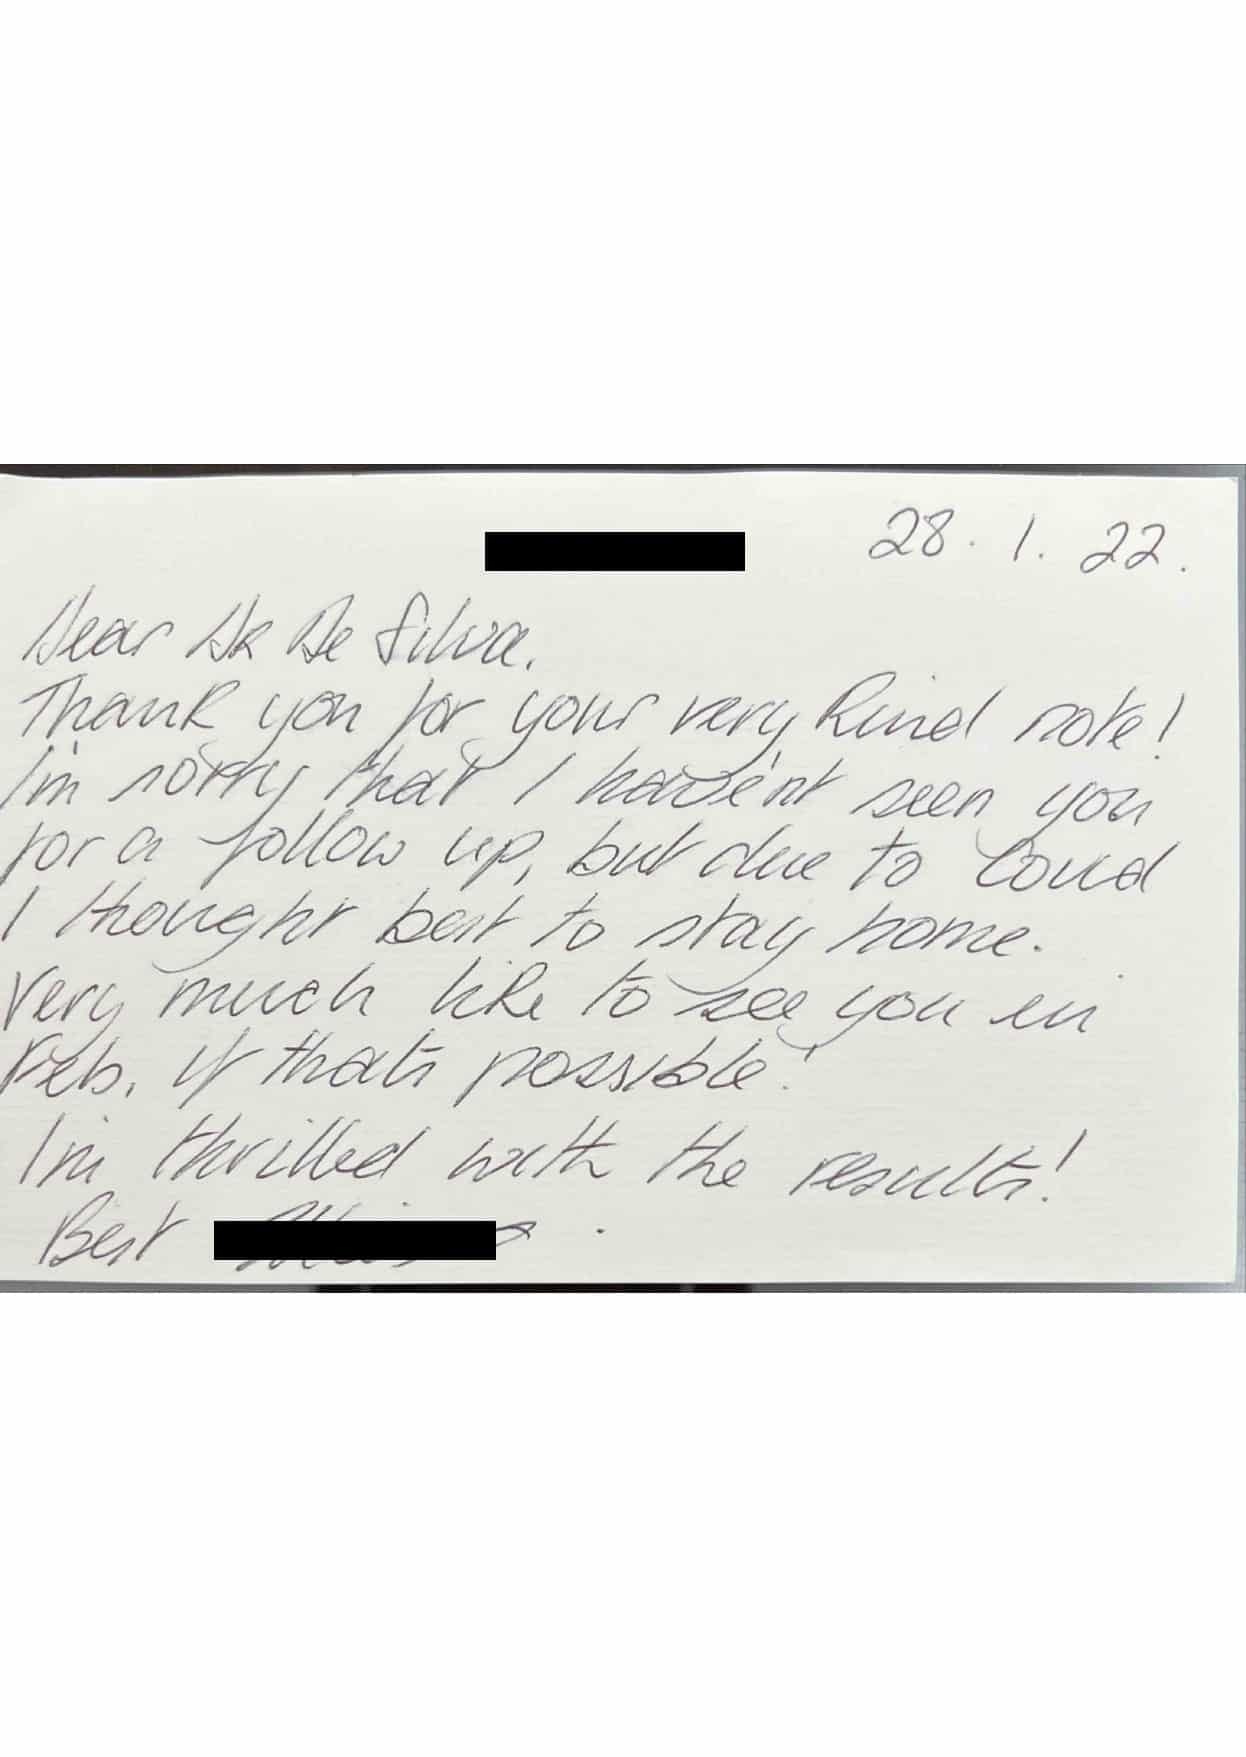 28. 1. 22.
Dear Dr De Silva.
Thank you for your very kind note!
I'm sorry that I have'nt seen you
for a follow up, but due to Covid
I thought best to stay home.
Very much like to see you in
Feb, if thats possible!
Im thrilled with the results!
Best